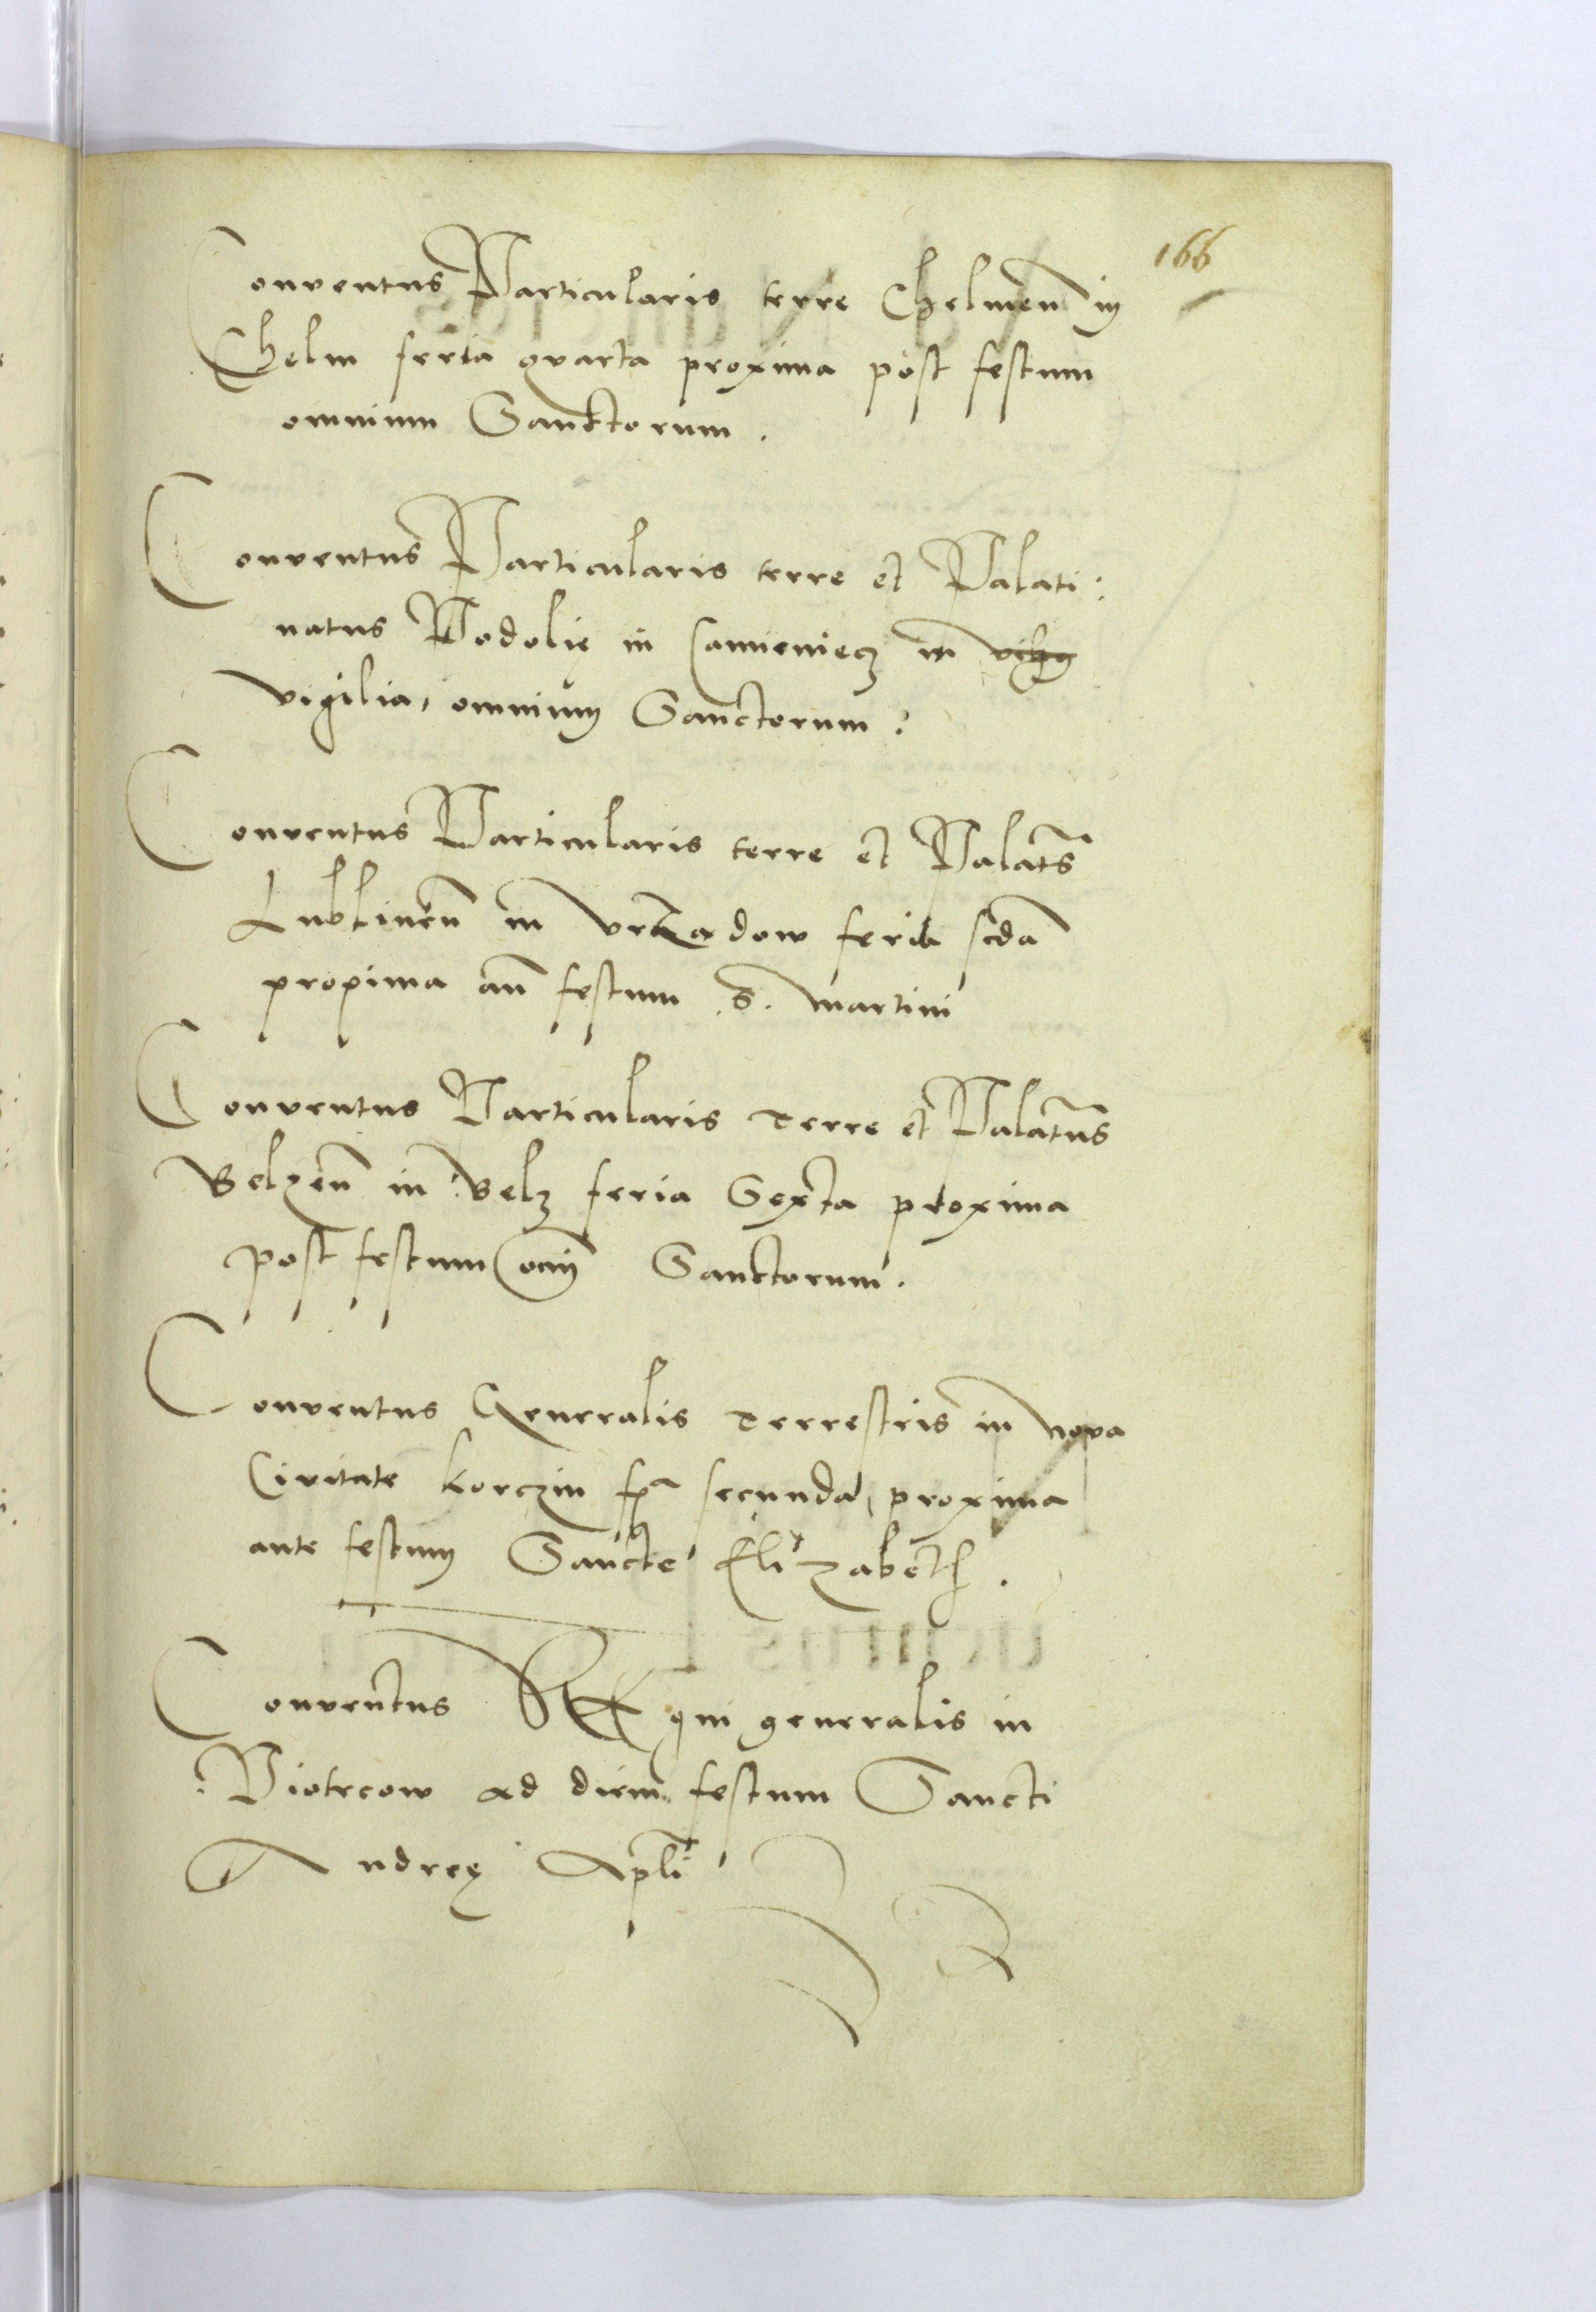 166
Conventus Particularis terre Chelmen̄ in
Chelm feria quarta proxima post festum
omnium Sanctorum.
Conventus Particularis terre et Palati:
natus Podolię in Camieniecz in
vigilia, omnium Sanctorum:
Conventus Particularis terre et Palatūs
Lublinen̄ in Vrzadow feria scda
proxima an̄ festum .S. Martini
Conventus Particularis Terre et Palatn̄s
Belzen̄ in Belz feria Sexta proxima
post festum om̄ Sanctorum.
Conventus Generalis Terrestris in Nova
Civitate Korczin fr̄a secunda, proxima
ante festum Sancte Elizabeth.
Conventus Regni generalis in
Piotrcow ad diem festum Sancti
Andreę Apli